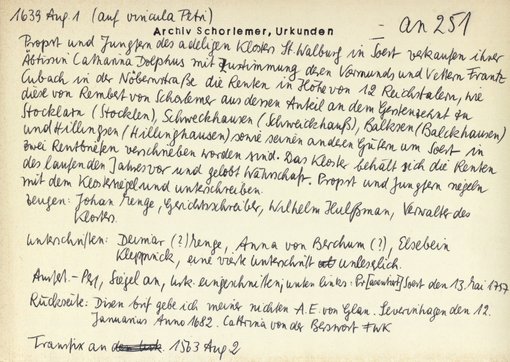 1639 Aug 1 (auf vincula Petri)
Archiv Schorlemer, Urkunden
- an 251
Propst und Jungfern des adeligen Klosters St. Walburg in Soest verkaufen ihrer
Äbtissin Catharina Dolphus mit Zustimmung deren Vormunds und Vettern Frantz
Cubach in der Nöbernstraße die Renten in Höhe von 12 Reichstalern, wie
diese von Rembert von Schorlemer aus dessen Anteil an dem Gerstenzehnt zu
Stocklarn (Stocklen), Schweckhausen (Schweickhauß), Balksen (Balckhausen)
und Hillingsen (Hillinghausen) sowie seinen anderen Gütern um Soest in
zwei Rentbriefen verschrieben worden sind. Das Kloster behält sich die Renten
des laufenden Jahres vor und gelobt Wahrschaft. Propst und Jungfern siegeln
mit dem Klostersiegel und unterschreiben.
Zeugen: Johan Menge, Gerichtsschreiber, Wilhelm Hulßman, Verwalter des
Klosters.
Unterschriften: Deimar (?) Menge, Anna von Berchum (?), Elsebein
Kleppinck, eine vierte Unterschrift unleslich.
Ausf. - Pgt, Siegel an, Urk. eingeschnitten, unten links: Pr[aesentavit] Soest den 13. Mai 1757
Rückseite: Disen brif gebe ich meiner nichten A.E. von Glan. Severinhagen den 12.
Januarius Anno 1682. Cattrina von der Berswort FWK
Transfix an 1563 Aug 2